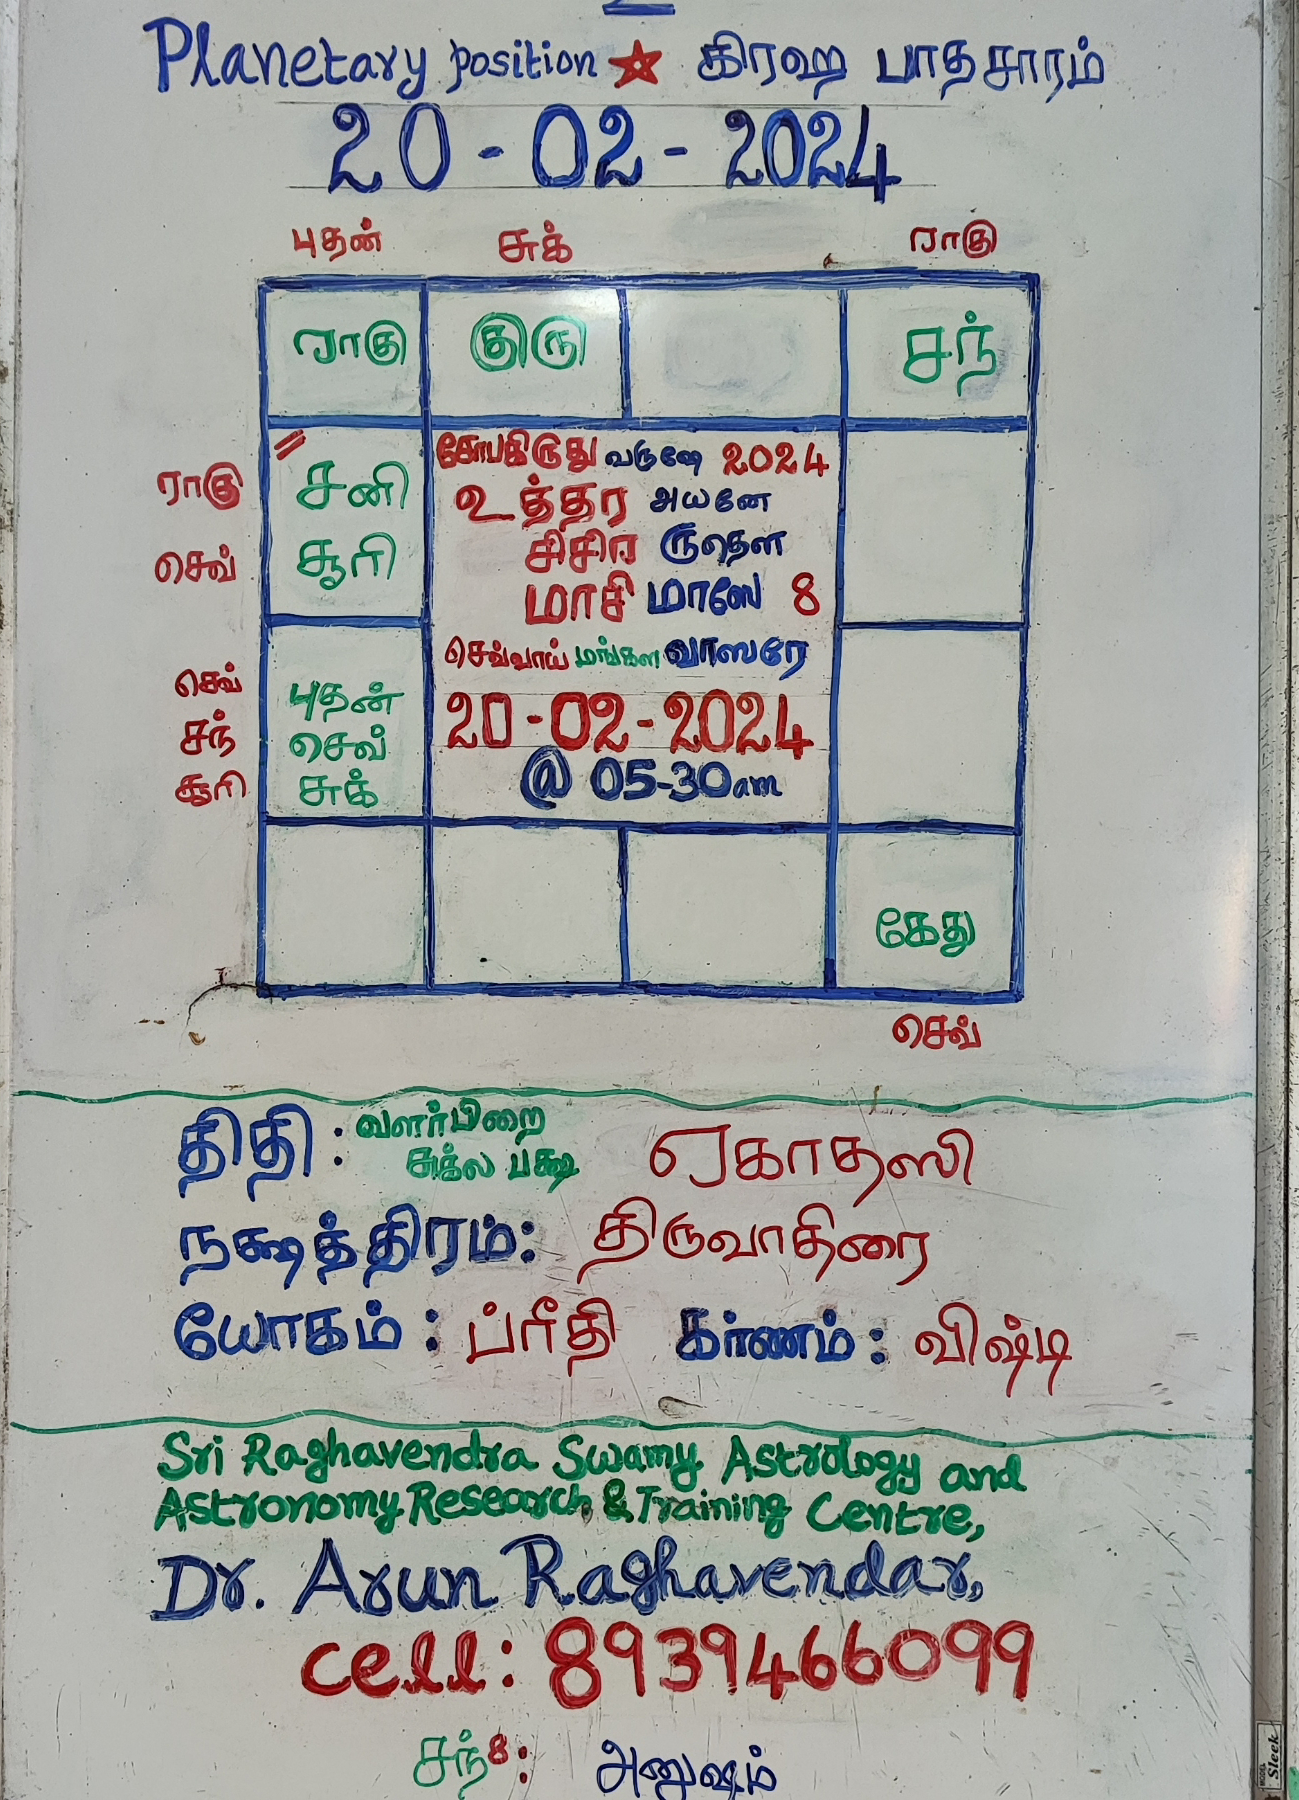 Planetary position கிரஹ பாதசாரம்
20-02-2024
புதன் சுக் ராகு
ராகு குரு சந்
ராகு சனி
செவ் சூரி
செவ் புதன்
சந் செவ்
சூரி சுக்
சோபகிருது வருஷே 2024
உத்தர அயனே
சிசிர ருதௌ
மாசி மாஸே 8
செவ்வாய் மங்கள வாஸரே
20-02-2024
@ 05-30am
கேது
செவ்
திதி : வளர்பிறை
சுக்ல பக்ஷ ஏகாதஸி
நக்ஷத்திரம்: திருவாதிரை
யோகம் : ப்ரீதி கர்ணம் : விஷ்டி
Sri Raghavendra Swamy Astrology and
Astronomy Research & Training Centre,
Dr. Arun Raghavendar,
cell: 8939466099
சந்8: அனுஷம்
MODEL Sleek